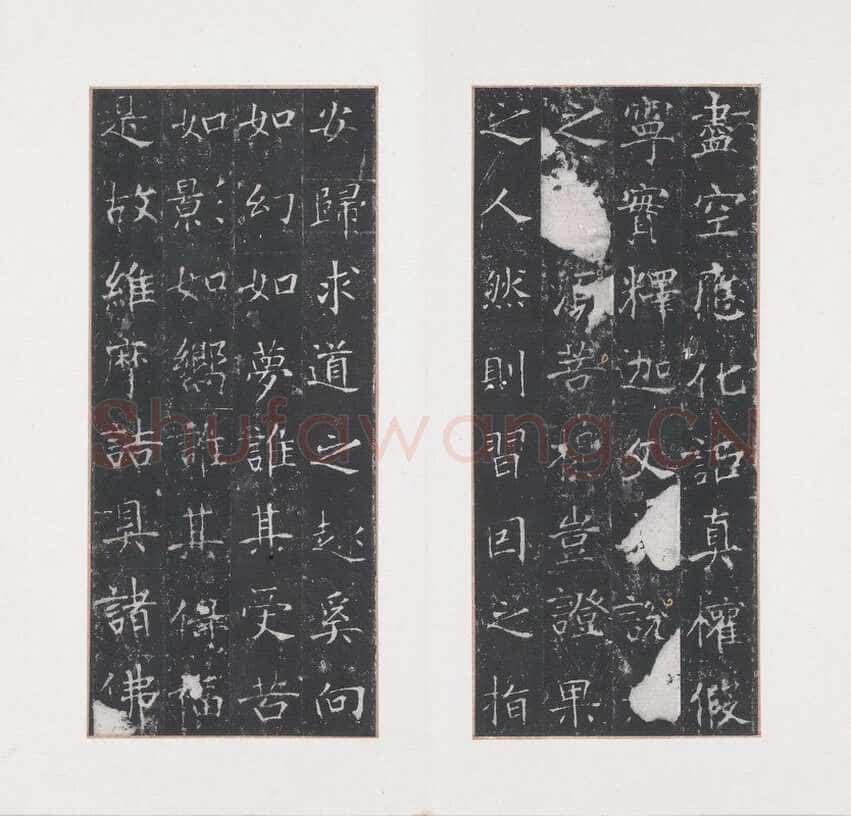 盡空應化詎真權假
寧實釋迦文說
之菩提豈證果
之人然則習因之指
安歸求道之趣奚向
如幻如夢誰其受苦
如影如嚮誰其福
是故維摩詰具諸佛
Shufawang.CN